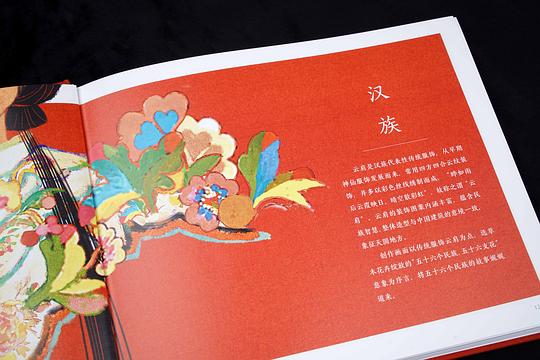 汉
族
云肩是汉族代表性传统服饰，从早期
神仙服饰发展而来，常用四方四合云纹装
饰，并多以彩色丝线绣制而成，“晔如雨
后云霞映日，晴空散彩虹”，故称之谓“云
肩”。云肩的装饰图案内涵丰富，蕴含民
族智慧，整体造型与中国建筑的意境一致，
象征天圆地方。
创作画面以传统服饰云肩为点，选草
木花卉绽放的“五十六个民族，五十六支花”
意象为序言，将五十六个民族的故事娓娓
道来。